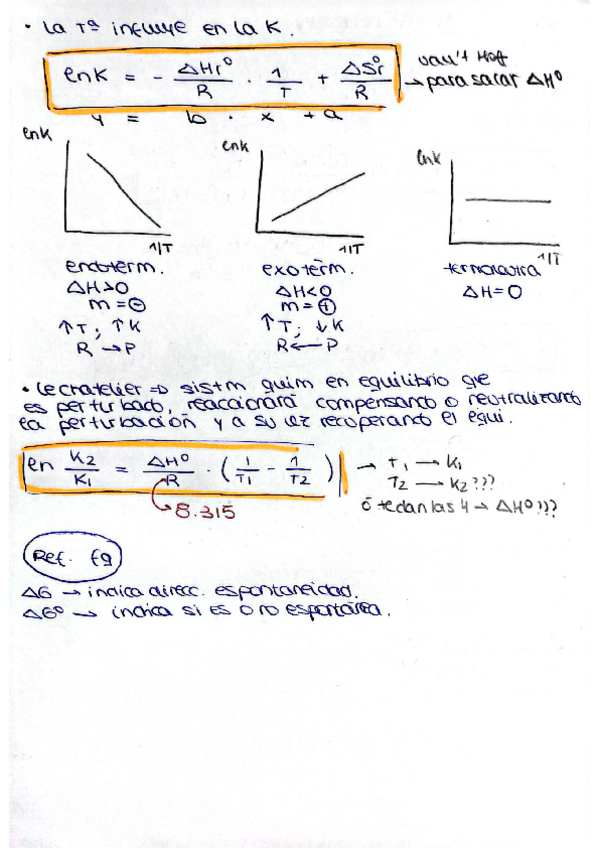 • La Tª influye en la K.
lnK = - ΔHr° / R · 1 / T + ΔSr° / R
van't Hoff
→ para sacar ΔH°
y = b · x + a
lnK
lnK
lnK
1/T
1/T
1/T
endoterm.
exoterm.
ΔH>0
ΔH<0
ΔH=0
m = ⊖
m = ⊕
↑T; ↑K
↑T; ↓K
R → P
R ← P
• Lechatelier ⇒ sistm quim en equilibrio que
es perturbado, reaccionará compensando o neutralizando
la perturbación y a su vez recuperando el equi.
ln K2 / K1 = ΔH° / R · (1 / T1 - 1 / T2)
→ T1 → K1
T2 → K2???
ó te dan las 4 → ΔH°???
8.315
Ref. Eq
ΔG → indica direcc. espontaneidad.
ΔG° → indica si es o no espontánea.